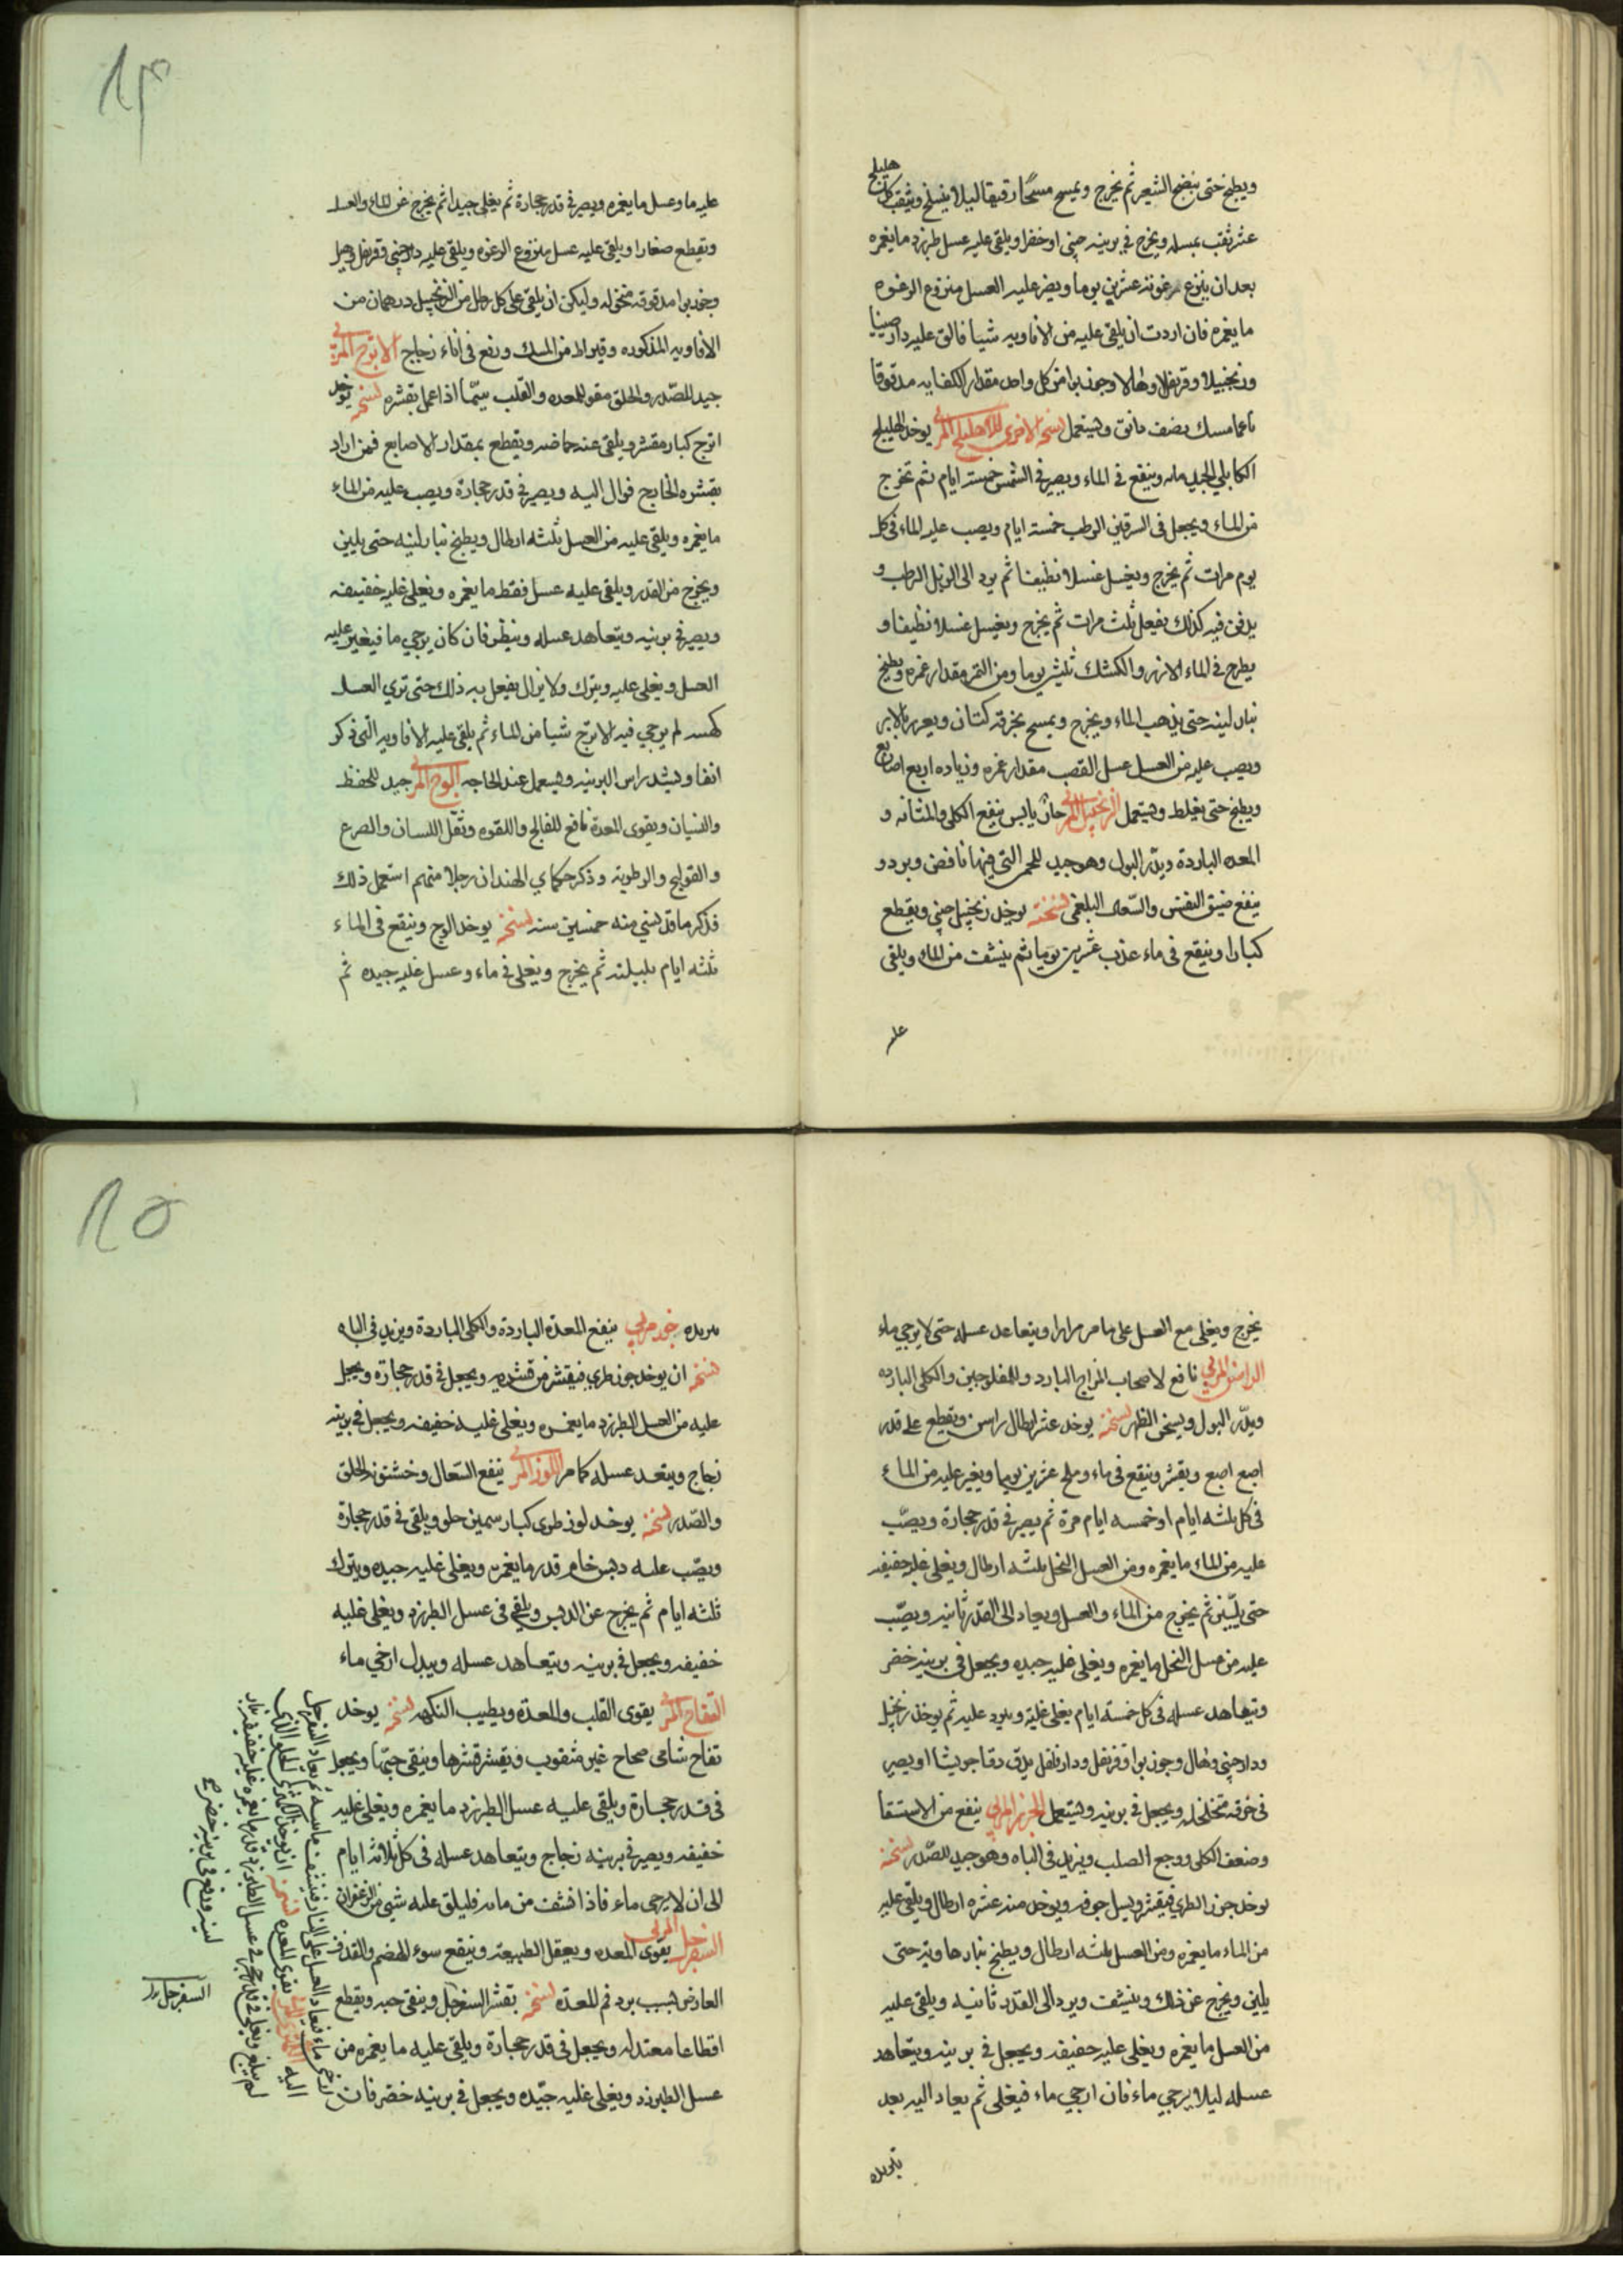 ويطبخ حتى ينضج الشعير ثم يخرج ويمسح مسحًا رقيقا ليلا ينسلخ ويثقب كل هليلج
عشر ثقب بمسله ويخرج في برنيه چيني او خضرا ويلقى عليه عسل طبرزد ما يغمره
بعد ان ينزع رغوته عشرين يوما ويصر عليه العسل منزوع الرغوه
ما يغمره فان اردت ان يلقى عليه من الافاويه شيا فالق عليه دارصينيا
وزنجبيلا وقرنفلا وهالا وجوزبوا من كل واحد مقدار الكفايه مدقوقا
ناعما مسك نصف دانق ويستعمل نسخة الاخرى للاهليلج المربى يوخذ الهليلج
الكابلي الجيد مائه وينقع في الماء ويصير في الشمس خمسة ايام ثم تخرج
من الماء ويجعل في السرقين الرطب خمسة ايام ويصب عليه الماء في كل
يوم مرات ثم يخرج ويغسل غسلا نظيفا ثم يرد الى الزبل الرطب و
يدفن فيه كذلك يفعل ثلث مرات ثم يخرج ويغسل غسلا نظيفا و
يطرح في الماء الارز والكشك ثلثين يوما ومن التمر مقدار غمره ويطبخ
بنار لينه حتى يذهب الماء ويخرج ويمسح بخرقه كتان ويغرز بالابر
ويصب عليه من العسل عسل القصب مقدار غمره وزياده اربع اصابع
ويطبخ حتى يغلظ ويستعمل الزنجبيل المربى حار يابس ينفع الكلى والمثانه و
المعده الباردة ويدر البول وهو جيد للحمى التي فيها نافض وبرد و
ينفع ضيق النفس والسعال البلغمي نسخته يوخذ زنجبيل چيني ويقطع
كبارا وينقع في ماء عذب عشرين يوما ثم ينشف من الماء ويلقى
عليه
١٤
عليه ما وعسل ما يغمره ويصير في قدر حجارة ثم يغلى جيدا ثم يخرج عن الماء والعسل
وتقطع صغارا ويلقى عليه عسل منزوع الرغوه ويلقى عليه دارچيني وقرنفل وهيل
وجوزبوا مدقوقه منخوله وليكن ان يلقى على كل رطل من الزنجبيل درهمان من
الافاويه المذكوره وقيراط من المسك ورفع في اناء زجاج الاترج المربى
جيد للصدر والحلق مقو للمعده والقلب سيما اذا عمل بقشره نسخته يوخذ
اترج كبار مقشر ويلقى عنه حماضه ويقطع بمقدار الاصابع فمن اراد
بقشره الخارج فوال اليه ويصير في قدر حجارة ويصب عليه من الماء
ما يغمره ويلقى عليه من العسل ثلثه ارطال ويطبخ بنار لينه حتى يلين
ويخرج من القدر ويلقى عليه عسل فقط ما يغمره ويغلى غليه خفيفه
ويصير في برنيه ويتعاهد عسله وينظر فان كان يرجي ما فيغير عليه
العسل ويغلى عليه ويترك ولا يزال يفعل به ذلك حتى تري العسل
كهسه لم يرجي فيه الاترج شيا من الماء ثم يلقى عليه الافاويه التي ذكر
انفا ويشد راس البرنيه ويستعمل عند الحاجه الوج المربى جيد للحفظ
والنسيان ويقوى المعدة نافع للفالج واللقوه وثقل اللسان والصرع
والقولنج والرطوبة وذكر حكماي الهند ان رجلا منهم استعمل ذلك
فذكر ما قد نسي منه خمسين سنه نسخته يوخذ الوج وينقع في الماء
ثلثه ايام بلياليه ثم يخرج ويغلى في ماء وعسل غليه جيده ثم
يخرج ويغلى مع العسل على ما مر مرارا ويتعاهد عسله حتى لا يرجي ماء
الراسن المربى نافع لاصحاب المزاج البارد وللمفلوجين والكلى البارده
ويدر البول ويسخن الظهر نسخته يوخذ عشر ارطال راسن ويقطع على قدر
اصبع اصبع ويقشر وينقع في ماء وملح عشرين يوما ويغير عليه من الماء
في كل ثلثه ايام او خمسه ايام مرة ثم يصير في قدر حجارة ويصب
عليه من الماء ما يغمره ومن العسل النحل ثلثه ارطال ويغلى غليه خفيفه
حتى يلين ثم يخرج من الماء والعسل ويعاد الى القدر ثانيه ويصب
عليه من عسل النحل ما يغمره ويغلى غليه جيده ويجعل في برنيه خضر
ويتعاهد عسله في كل خمسة ايام يغلى غليه ويرد عليه ثم يوخذ زنجبيل
ودارچيني وهال وجوزبوا وقرنفل ودارفلفل يدق دقا جريشا او يصير
في خرقه تخلخله ويجعل في برنيه ويستعمل الجزر المربى ينفع من الاستسقا
وضعف الكلى ووجع الصلب ويزيد في الباه وهو جيد للصدر نسخته
يوخذ جزر الطري فيقشر ويسل جوفه ويوخذ منه عشره ارطال ويلقى عليه
من الماء ما يغمره ومن العسل ثلثه ارطال ويطبخ بنار هاديه حتى
يلين ويخرج عن ذلك وينشف ويرد الى القدر ثانيه ويلقى عليه
من العسل ما يغمره ويغلى غليه خفيفه ويجعل في برنيه ويتعاهد
عسله ليلا يرجي ماء فان ارجي ماء فيغلى ثم يعاد اليه بعد
تبريده
١٥
تبريده جوز مربى ينفع المعدة الباردة والكلى الباردة ويزيد في الباه
نسخته ان يوخذ جوز طري فيقشر من قشريه ويجعل في قدر حجارة ويجعل
عليه من العسل الطبرزد ما يغمره ويغلى غليه خفيفه ويجعل في برنيه
زجاج ويتعهد عسله كما مر اللوز المربى ينفع السعال وخشونه الحلق
والصدر نسخته يوخذ لوز طري كبار سمين حلو ويلقى في قدر حجارة
ويصب عليه دبس خام قدر ما يغمره ويغلى غليه جيده ويترك
ثلثه ايام ثم يخرج عن الدبس ويلقى في عسل الطبرزد ويغلى غليه
خفيفه ويجعل في برنيه ويتعاهد عسله ويبدل ارخي ماء
التفاح المربى يقوى القلب والمعدة ويطيب النكهه نسخته يوخذ
تفاح شامي صحاح غير مثقوب وتقشر قشرها وينقى حبها ويجعل
في قدر حجارة ويلقى عليه عسل الطبرزد ما يغمره ويغلى غليه
خفيفه ويصير في برنيه زجاج ويتعاهد عسله في كل ثلاثه ايام
الى ان لا يرجي ماء فاذا نشفت من مائه فليلق عليه شي من الزعفران
السفرجل المربى يقوى المعده ويعقل الطبيعة وينفع سوء الهضم والقذف
العارض بسبب برد فم المعدة نسخته يقشر السفرجل وينقى حبه ويقطع
اقطاعا معتدله ويجعل في قدر حجارة ويلقى عليه ما يغمره من
عسل الطبرزد ويغلى غليه جيده ويجعل في برنيه خضر فان
ارخى ماء فيعاد العسل على النار فينشف مائه ثم يعاد السفرجل
اليه الكمثرى المربى يقوى المعده نسخته ان يوخذ الكمثرى الحلو الذي
لم يبلغ ويغلى في قدر حجر في عسل الطبرزد قدر ما يغمره غليه خفيفه بنار
لينه ورفع في برنيه خضر